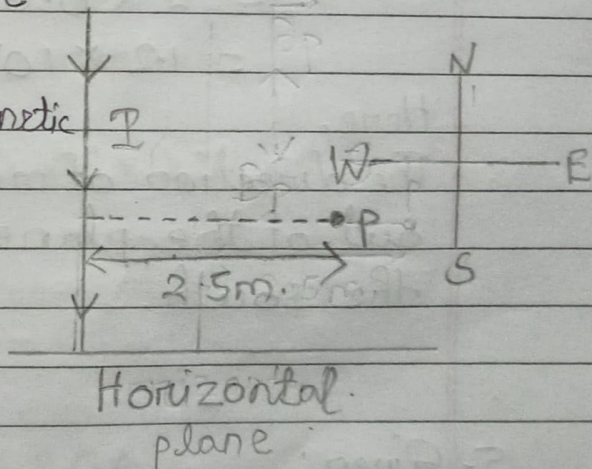 N
netic I
W E
P
S
2.5m.
Horizontal.
plane